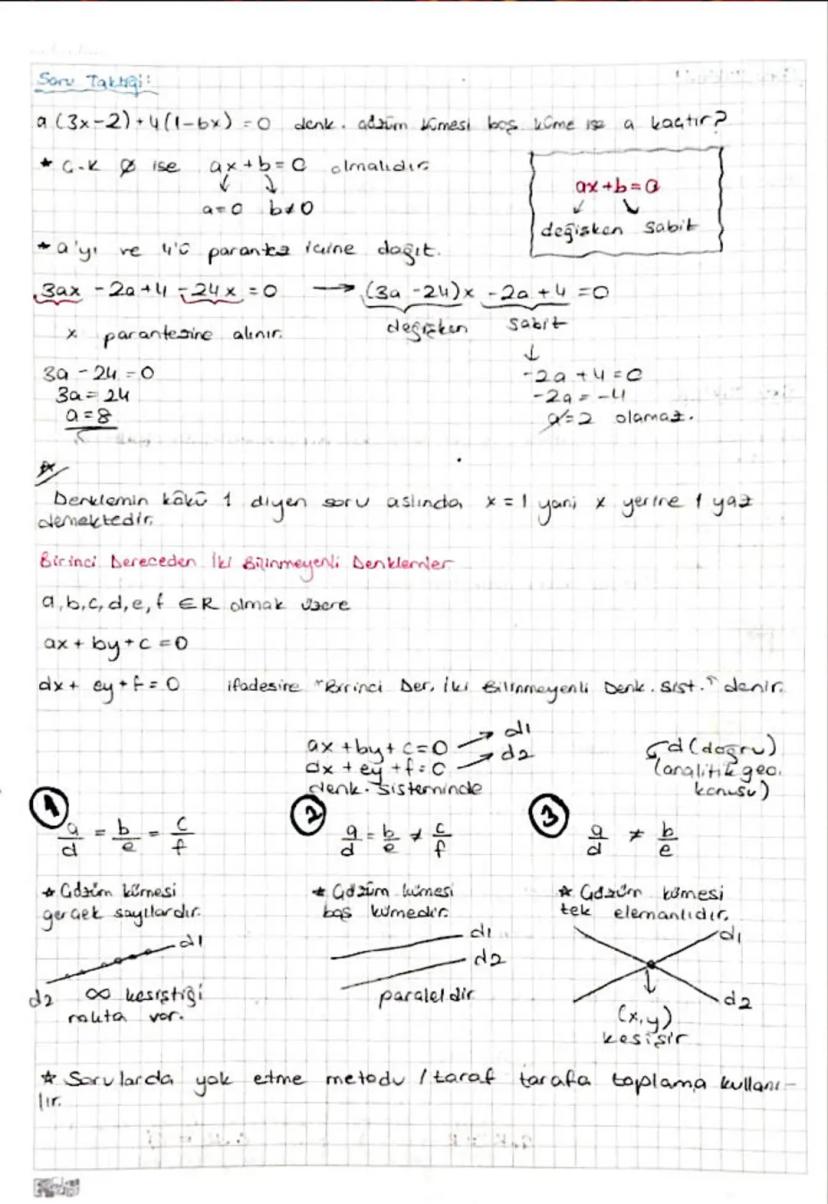 Soru Taktiği:
a(3x-2)+4(1-6x)=0 denk. çözüm kümesi boş küme ise a kaçtır?
* Ç.K ∅ ise ax+b=0 olmalıdır.
a=0 b≠0
ax+b=0
değişken sabit
* a'yı ve 4'ü parantez içine dağıt.
3ax -2a+4 -24x =0 → (3a-24)x -2a+4=0
x parantezine alınır.
değişken sabit
3a-24=0
3a=24
a=8
-2a+4=0
-2a=-4
a=2 olamaz.
Denklemin kökü 1 diyen soru aslında x=1 yani x yerine 1 yaz
demektedir.
Birinci Dereceden İki Bilinmeyenli Denklemler
a,b,c,d,e,f ∈R olmak üzere
ax+by+c=0
dx+ ey+f=0 ifadesine "Birinci Der. İki Bilinmeyenli Denk. Sist." denir.
ax+by+c=0 → d1
dx+ey+f=0 → d2
denk. sisteminde
d(doğru)
(analitik geo.
konusu)
1 a/d = b/e = c/f
2 a/d = b/e ≠ c/f
3 a/d ≠ b/e
* Çözüm kümesi
gerçek sayılardır.
d1
d2 ∞ kesiştiği
nokta var.
* Çözüm kümesi
boş kümedir.
d1
d2
paraleldir
* Çözüm kümesi
tek elemanlıdır.
d1
d2
(x,y)
kesişir
* Sorularda yok etme metodu / taraf tarafa toplama kullanı-
lır.